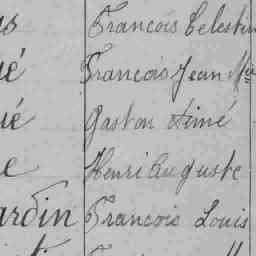 us François Celestin
ué François Jean Mie
ué Gaston Aimé
e Henri Auguste
ardin François Louis